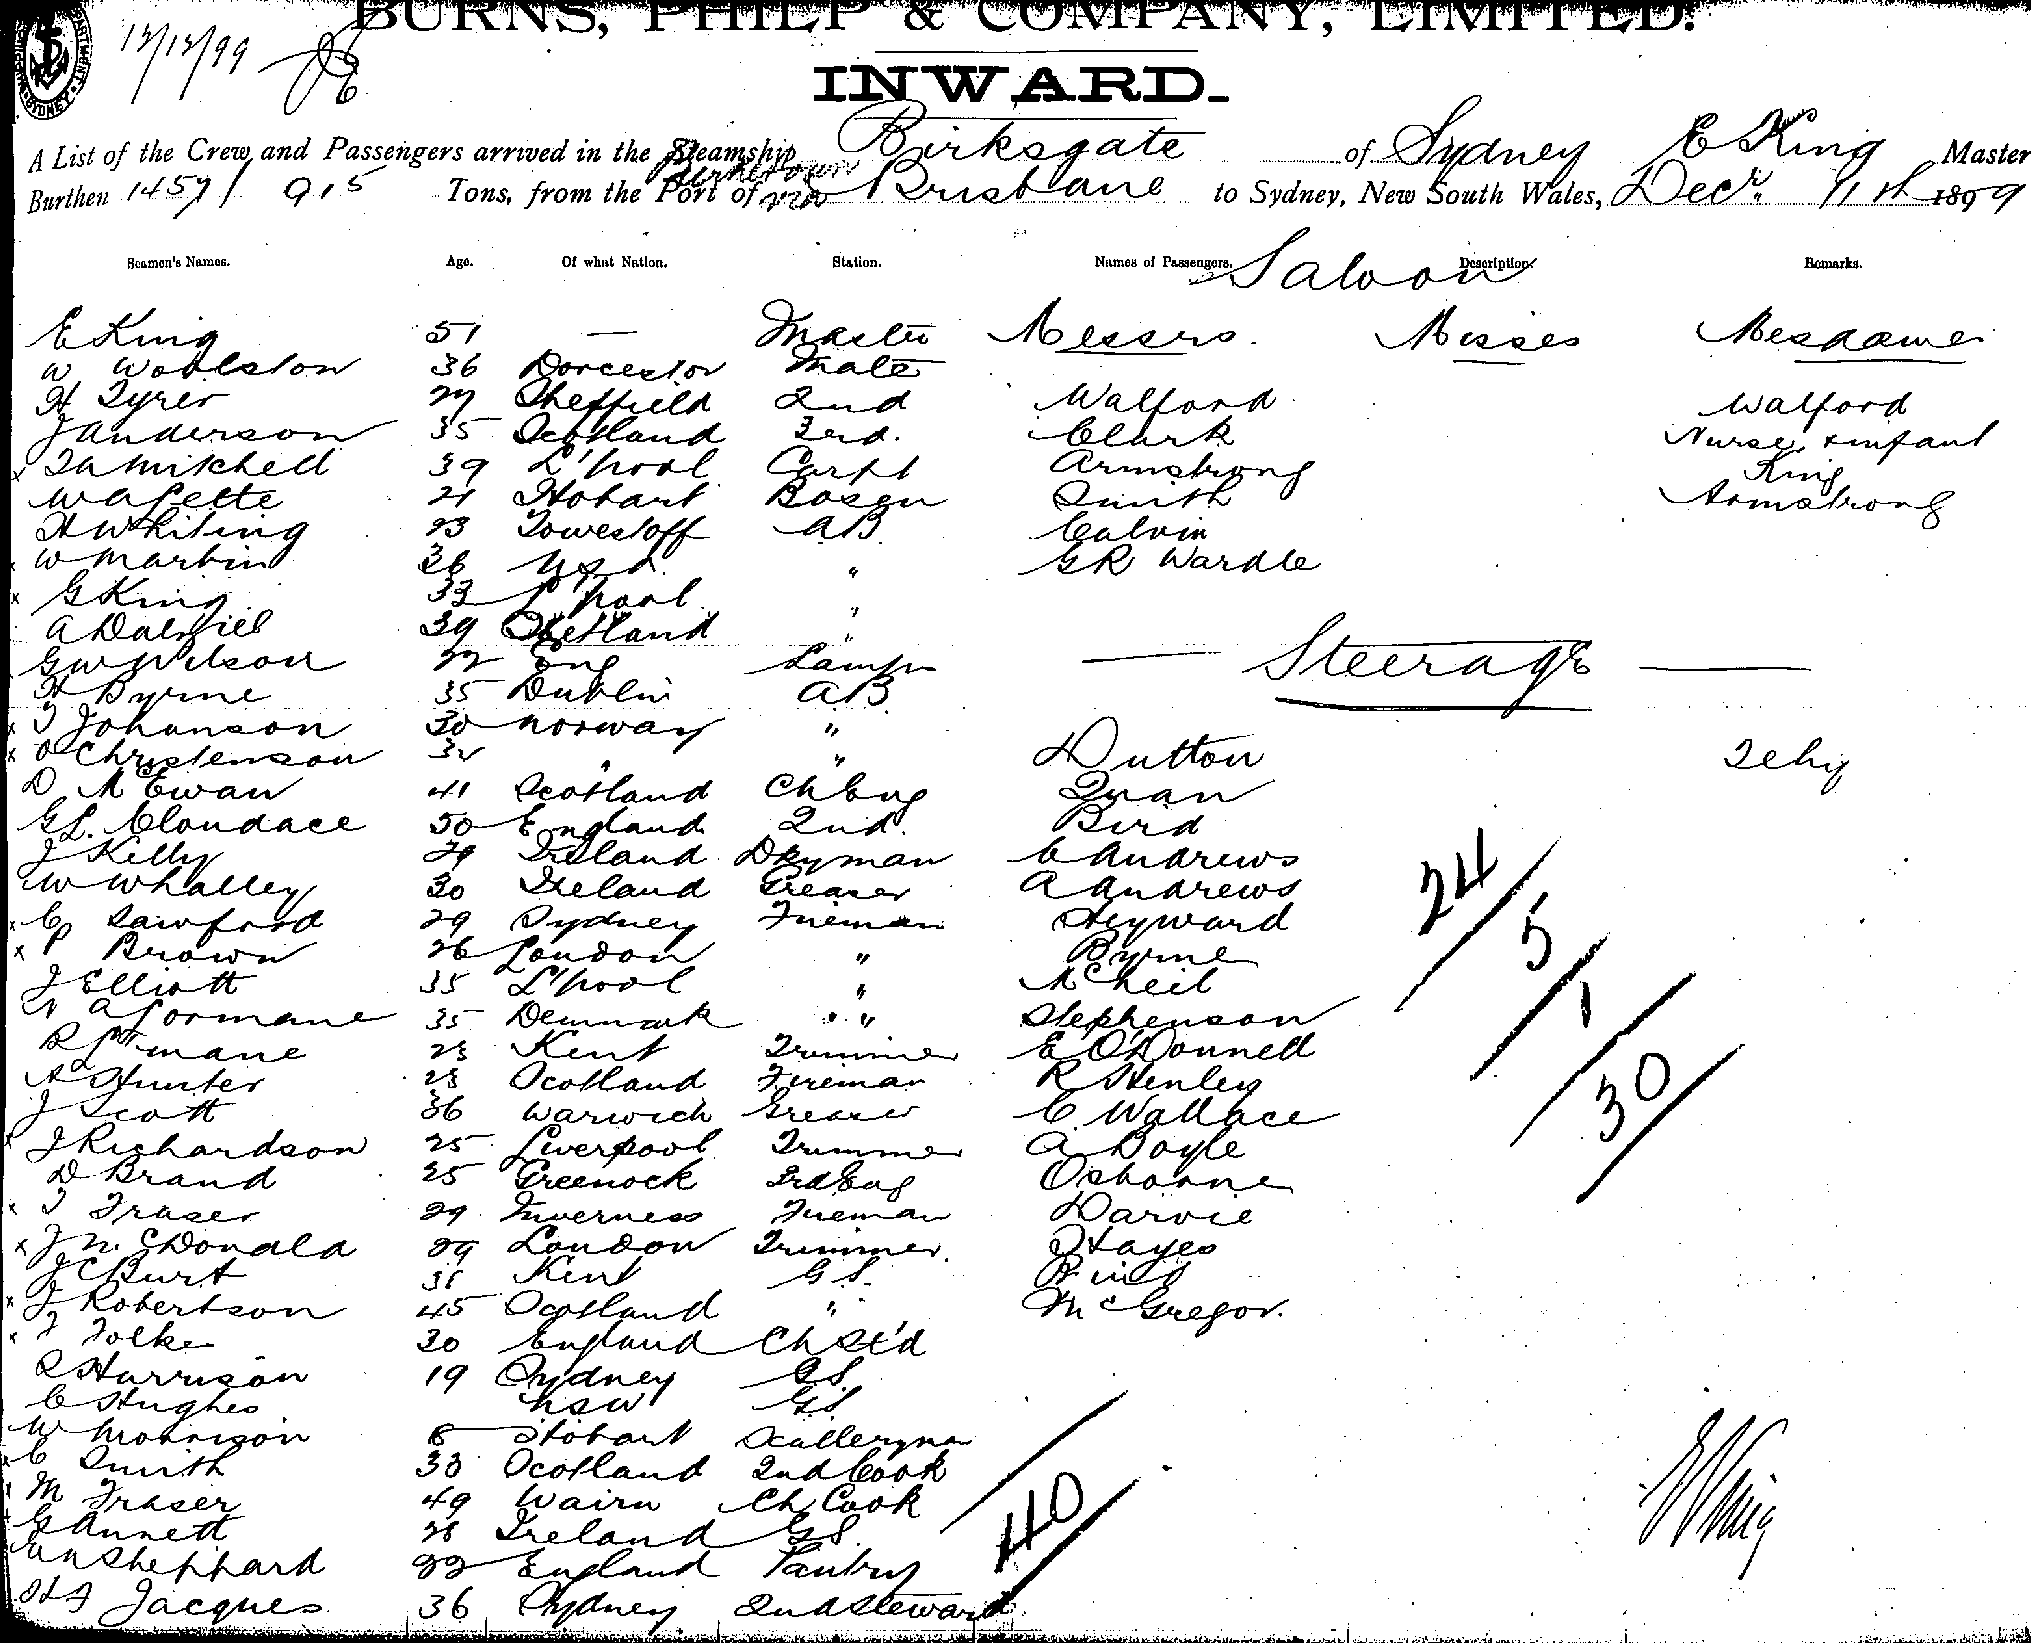 BURNS, PHILP & COMPANY, LIMITED.
12/12/99
INWARD.
A List of the Crew and Passengers arrived in the Steamship Birksgate of Sydney E King Master
Burthen 1457/915 Tons, from the Port of via Brisbane to Sydney, New South Wales, Decr. 11th 1899
Seamen's Names. Age. Of what Nation. Station. Names of Passengers. Description. Remarks.
Saloon
E King 51 — Master Messrs. Misses Mesdames
W Woolston 36 Dorcestor Mate
H Tyrer 27 Sheffield 2nd Walford Walford
J Anderson 35 Scotland 3rd. Clark Nurse & infant
x Mitchell 39 L'pool Carpt Armstrong King
21 Hobart Bosen Smith Armstrong
H Whiting 23 Lowestoff AB Calvin
W Martin 36 " GR Wardle
x G King 33 L'pool "
A Dalziel 39 Shetland "
GW Wilson 22 Eng Lamps — Steerage —
H Byrne 35 Dublin AB
x Johanson 30 Norway "
x Christenson " " Dutton
D McEwan 41 Scotland Ch Eng Quan
GL. Cloudace 50 England 2nd. Bird
J Kelly 29 Ireland Dkyman C Andrews
W Whalley 30 Ireland Greaser A Andrews
x C Sawford 29 Sydney Fireman Heyward
x P Brown 26 London " Byrne
J Elliott 35 L'pool " McNeil
35 Denmark " Stephenson
Kent Trimmer E O'Donnell
A Hunter Scotland Fireman R Henley
J Scott 36 Warwich Greaser C. Wallace
x J Richardson 25 Liverpool Trimmer A Doyle
D Brand 25 Greenock 3rd Eng Osborne
x Fraser 29 Inverness Fireman Darvie
x J McDonald 29 London Trimmer Hayes
J C Burt Kent GS.
x J Robertson 45 Scotland " McGregor.
x Folke 30 England Ch St'd
Harrison 19 Sydney GS
C Hughes NSW GS
W Morrison Hobart Sculleryman
C Smith 33 Scotland 2nd Cook
M Fraser 49 Ch Cook
G Annett Ireland GS
Sheppard 22 England Pantry
Jacques 36 Sydney 2nd Steward
24/
5/
1/
30/
40/
E King